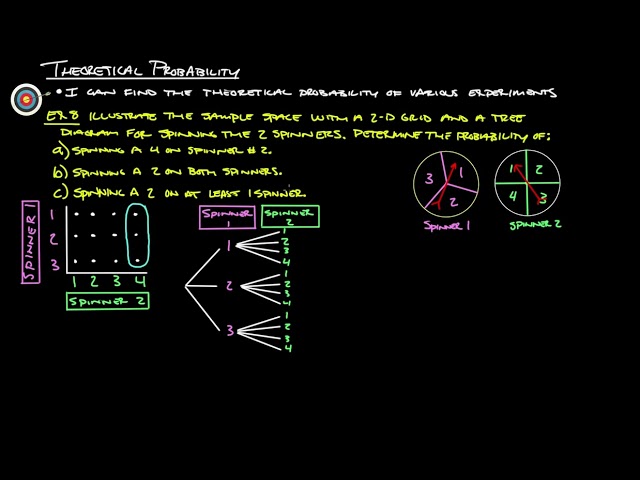 THEORETICAL PROBABILITY
• I CAN FIND THE THEORETICAL PROBABILITY OF VARIOUS EXPERIMENTS
EX.8 ILLUSTRATE THE SAMPLE SPACE WITH A 2-D GRID AND A TREE
DIAGRAM FOR SPINNING THE 2 SPINNERS. DETERMINE THE PROBABILITY OF:
a) SPINNING A 4 ON SPINNER #2.
b) SPINNING A 2 ON BOTH SPINNERS.
c) SPINNING A 2 ON AT LEAST 1 SPINNER.
3 1 2
SPINNER 1
1 2 4 3
SPINNER 2
SPINNER 1
1
2
3
1 2 3 4
SPINNER 2
SPINNER 1
SPINNER 2
1
1
2
3
4
2
1
2
3
4
3
1
2
3
4